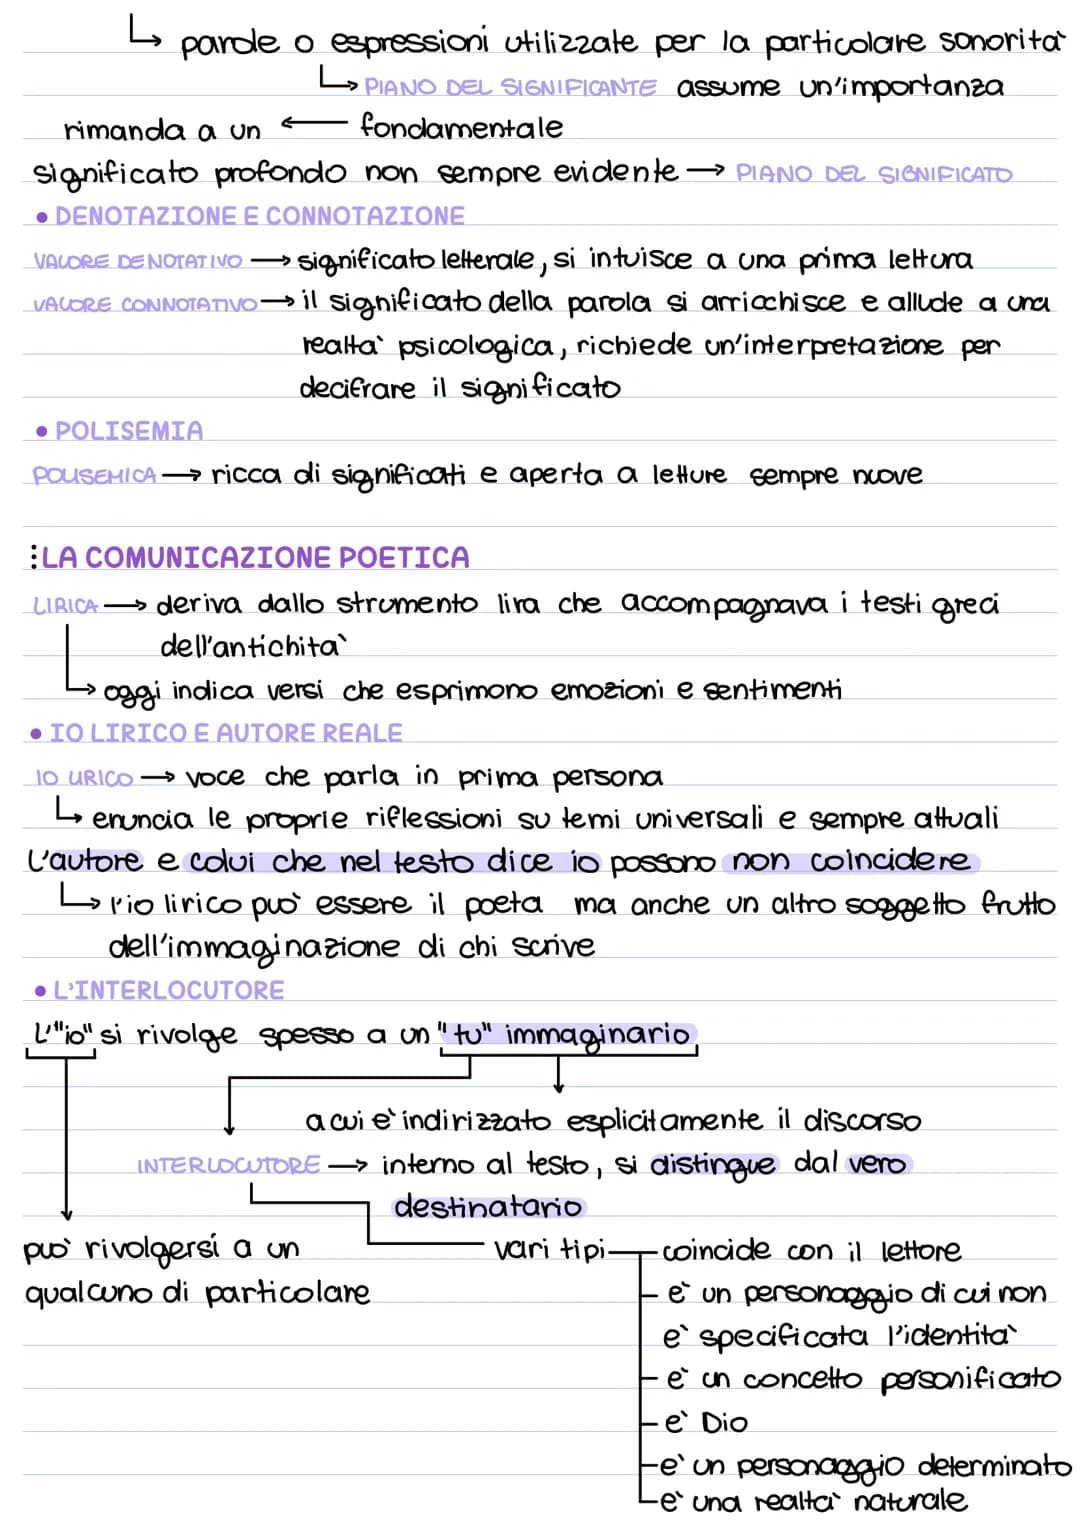 ↳ parole o espressioni utilizzate per la particolare sonorità
↳ PIANO DEL SIGNIFICANTE assume un'importanza
rimanda a un ← fondamentale
significato profondo non sempre evidente → PIANO DEL SIGNIFICATO
• DENOTAZIONE E CONNOTAZIONE
VALORE DENOTATIVO → significato letterale, si intuisce a una prima lettura
VALORE CONNOTATIVO → il significato della parola si arricchisce e allude a una
realtà psicologica, richiede un'interpretazione per
decifrare il significato
• POLISEMIA
POLISEMICA → ricca di significati e aperta a letture sempre nuove
⋮LA COMUNICAZIONE POETICA
LIRICA → deriva dallo strumento lira che accompagnava i testi greci
dell'antichità
↳ oggi indica versi che esprimono emozioni e sentimenti
• IO LIRICO E AUTORE REALE
IO LIRICO → voce che parla in prima persona
↳ enuncia le proprie riflessioni su temi universali e sempre attuali
L'autore e colui che nel testo dice io possono non coincidere
↳ l'io lirico può essere il poeta ma anche un altro soggetto frutto
dell'immaginazione di chi scrive
• L'INTERLOCUTORE
L'"io" si rivolge spesso a un "tu" immaginario
a cui è indirizzato esplicitamente il discorso
INTERLOCUTORE → interno al testo, si distingue dal vero
destinatario
può rivolgersi a un
qualcuno di particolare
vari tipi
coincide con il lettore
è un personaggio di cui non
è specificata l'identità
è un concetto personificato
è Dio
è un personaggio determinato
è una realtà naturale